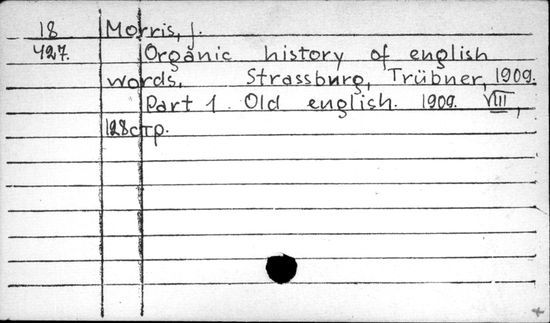 18 Morris, J.
427. Organic history of english
words, Strassburg, Trübner, 1909.
Part 1. Old english. 1909. VIII,
128стр.